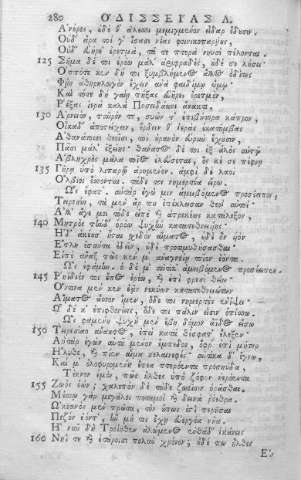 280 ὈΔΥΣΣΕΙΑΣ Λ.
Ἀνέρες, οὐδέ θ' ἅλεσσι μεμιγμένον εἶδαρ ἔδουσιν·
Οὐδ' ἄρα τοί γ' ἴσασι νέας φοινικοπαρῄους,
Οὐδ' εὐήρε' ἐρετμὰ, τά τε πτερὰ νηυσὶ πέλονται.
125 Σῆμα δέ τοι ἐρέω μάλ' ἀριφραδὲς, οὐδέ σε λήσει·
Ὁππότε κεν δή τοι ξυμβλήμενος ἄλλος ὁδίτης
Φήῃ ἀθηρηλοιγὸν ἔχειν ἀνὰ φαιδίμῳ ὤμῳ·
Καὶ τότε δὴ γαίῃ πήξας εὐῆρες ἐρετμὸν,
Ῥέξας ἱερὰ καλὰ Ποσειδάωνι ἄνακτι,
130 Ἀρνειὸν, ταῦρόν τε, συῶν τ' ἐπιβήτορα κάπρον,
Οἴκαδ' ἀποστείχειν, ἔρδειν θ' ἱερὰς ἑκατόμβας
Ἀθανάτοισι θεοῖσι, τοὶ οὐρανὸν εὐρὺν ἔχουσι,
Πᾶσι μάλ' ἑξείης· θάνατος δέ τοι ἐξ ἁλὸς αὐτῷ
Ἀβληχρὸς μάλα τοῖος ἐλεύσεται, ὅς κέ σε πέφνῃ
135 Γήρᾳ ὕπο λιπαρῷ ἀρημένον, ἀμφὶ δὲ λαοὶ
Ὄλβιοι ἔσονται. τάδε τοι νημερτέα εἴρω.
Ὣς ἔφατ'. αὐτὰρ ἐγώ μιν ἀμειβόμενος προσέειπον,
Τειρεσίη, τὰ μὲν ἄρ που ἐπέκλωσαν θεοὶ αὐτοί·
Ἀλλ' ἄγε μοι τόδε εἰπὲ καὶ ἀτρεκέως κατάλεξον,
140 Μητρὸς τήνδ' ὁρόω ψυχὴν κατατεθνηυίης·
Ἡ δ' ἀκέουσ' ἧσται σχεδὸν αἵματος, οὐδ' ἑὸν υἱὸν
Ἔτλη ἐσάντα ἰδεῖν, οὐδὲ προτιμυθήσασθαι·
Εἰπὲ ἄναξ πῶς κέν μ' ἀναγνοίη τοῖον ἐόντα.
Ὣς ἐφάμην. ὁ δέ μ' αὐτίκ' ἀμειβόμενος προσέειπεν.
145 Ῥηΐδιόν τοι ἔπος ἐρέω, καὶ ἐπὶ φρεσὶ θήσω·
Ὅντινα μέν κεν ἐᾷς νεκύων κατατεθνειώτων
Αἵματος ἆσσον ἴμεν, ὅδε τοι νημερτὲς ἐνίψει·
ᾯ δέ κ' ἐπιφθονέοις, ὅδε τοι πάλιν εἶσιν ὀπίσσω.
Ὣς φαμένη ψυχὴ μὲν ἔβη δόμον Ἄϊδος εἴσω
150 Τειρεσίαο ἄνακτος, ἐπεὶ κατὰ θέσφατ' ἔλεξεν·
Αὐτὰρ ἐγὼν αὐτοῦ μένον ἔμπεδον, ὄφρ' ἐπὶ μήτηρ
Ἤλυθε, καὶ πίεν αἷμα κελαινεφές· αὐτίκα δ' ἔγνω,
Καί μ' ὀλοφυρομένη ἔπεα πτερόεντα προσηύδα·
Τέκνον ἐμὸν, πῶς ἦλθες ὑπὸ ζόφον ἠερόεντα
155 Ζωὸς ἐών; χαλεπὸν δὲ τάδε ζωοῖσιν ὁρᾶσθαι.
Μέσσῳ γὰρ μεγάλοι ποταμοὶ καὶ δεινὰ ῥέεθρα.
Ὠκεανὸς μὲν πρῶτα, τὸν οὔπως ἐστὶ περῆσαι
Πεζὸν ἐόντ', ἢν μή τις ἔχῃ εὐεργέα νῆα.
Ἦ νῦν δὴ Τροίηθεν ἀλώμενος ἐνθάδ' ἱκάνεις
160 Νηΐ τε καὶ ἑτάροισι πολὺν χρόνον; οὐδέ πω ἦλθες
Εἰς